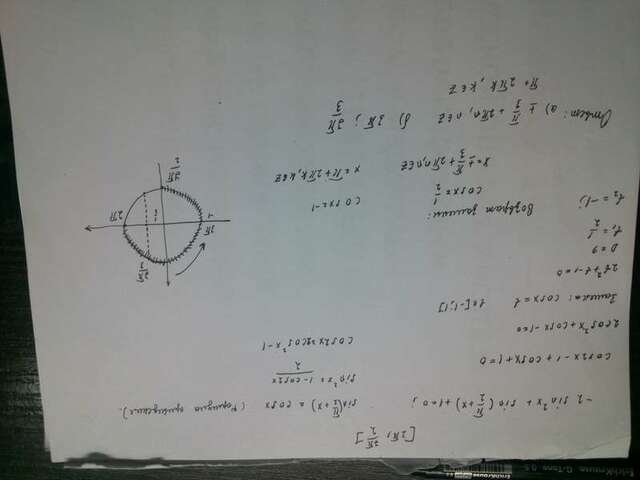 ErichKrause G-Tone 0.5 ErichKrause
[2π; 7π/2]
-2 sin²x + sin(π/2 + x) + 1 = 0;
sin(π/2 + x) = cosx (Формула приведения).
sin²x = (1-cos2x)/2
cos2x = 2cos²x - 1
cos2x - 1 + cosx + 1 = 0
2cos²x + cosx - 1 = 0
Замена: cosx = t t ∈ [-1; 1]
2t² + t - 1 = 0
D = 9
t₁ = 1/2
t₂ = -1;
Возврат замены:
cosx = 1/2
cosx = -1
x = ± π/3 + 2πn, n ∈ Z
x = π + 2πk, k ∈ Z
7π/3
3π
-1
1/2
2π
7π/2
Ответ: а) ± π/3 + 2πn, n ∈ Z б) 3π; 7π/3
π + 2πk, k ∈ Z